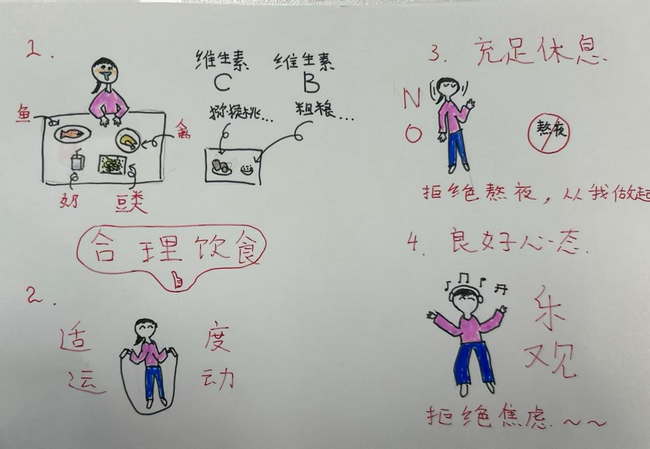 1.
维生素 C
维生素 B
猕猴桃...
粗粮...
鱼
禽
奶
豆类
合理饮食
2.
适度
运动
3. 充足休息
NO
熬夜
拒绝熬夜，从我做起
4. 良好心态
乐观
拒绝焦虑~~